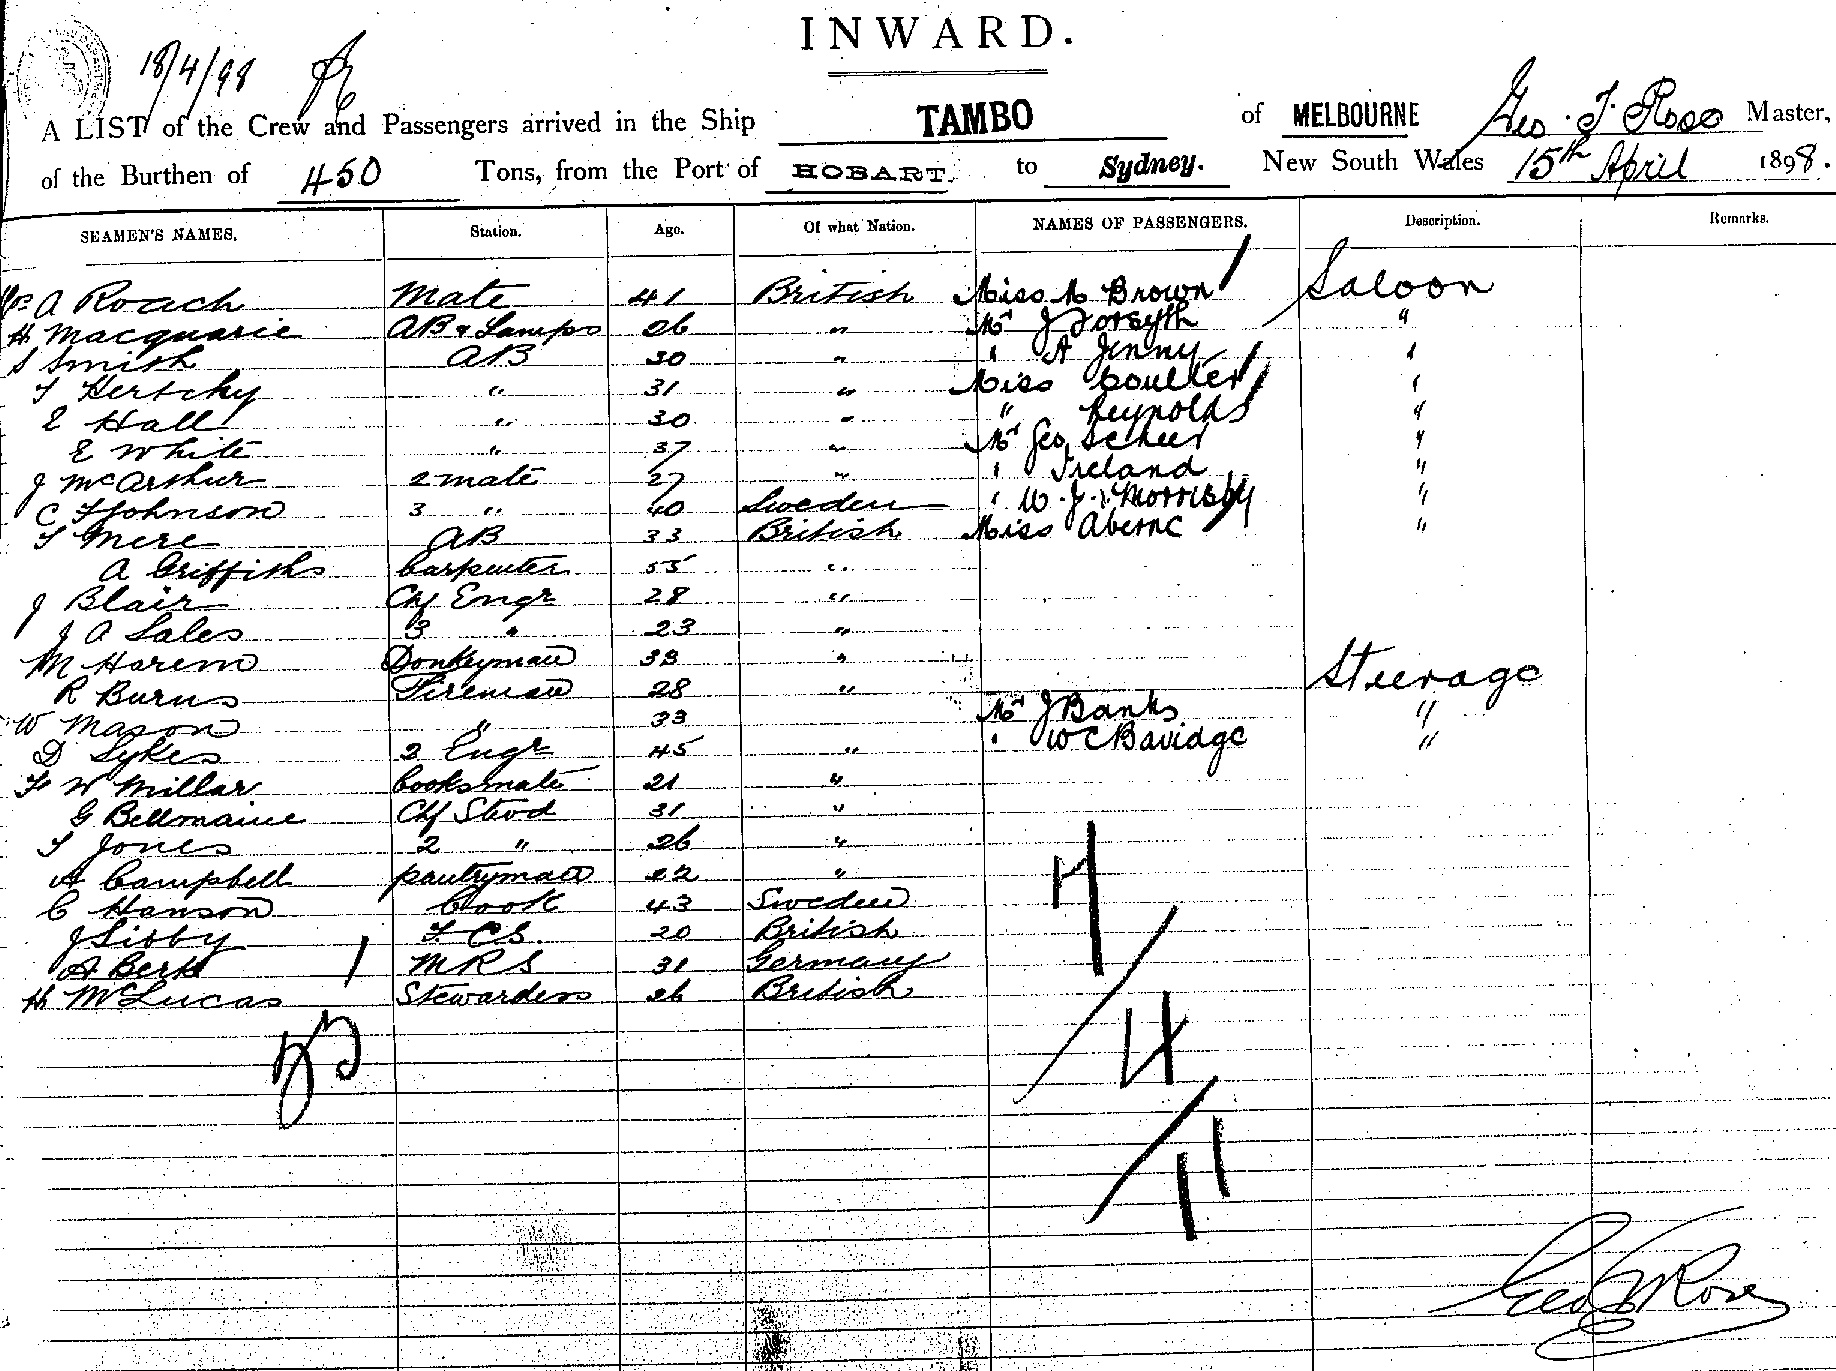 INWARD.
18/4/98
A LIST of the Crew and Passengers arrived in the Ship TAMBO of MELBOURNE Geo. T. Rose Master,
of the Burthen of 450 Tons, from the Port of HOBART. to Sydney. New South Wales 15th April 1898.
SEAMEN'S NAMES. Station. Age. Of what Nation. NAMES OF PASSENGERS. Description. Remarks.
A Roach Mate 41 British Miss M Brown Saloon
H Macquarie AB & Lamps 26 " Mr J Forsyth "
S Smith AB 30 " " A Jenny "
T Hertchy " 31 " Miss Coulter "
E Hall " 30 " " Reynolds "
E White " 37 " Mr Geo Scheer "
J McArthur 2 mate 27 " " Ireland "
C F Johnson 3 " 40 Sweden " W. J. Morrisby "
T Mere AB 33 British Miss Aberne "
A Griffiths Carpenter 55 "
J Blair Chf Engr 28 "
J A Sales 3 " 23 "
M Harem Donkeyman 38 " Steerage
R Burns Fireman 28 "
W Mason " 33 Mr J Banks "
D Sykes 2 Engr 45 " " W C Bavidge "
F W Millar Cooksmate 21 "
G Bellmaine Chf Stwd 31 "
T Jones 2 " 26 "
A Campbell pantryman 22 "
C Hanson Cook 43 Sweden
J Libby F.C.S. 20 British
A Berk MRS 31 Germany
H McLucas Stewardess 26 British
7
/
4
/
11
Geo T Rose